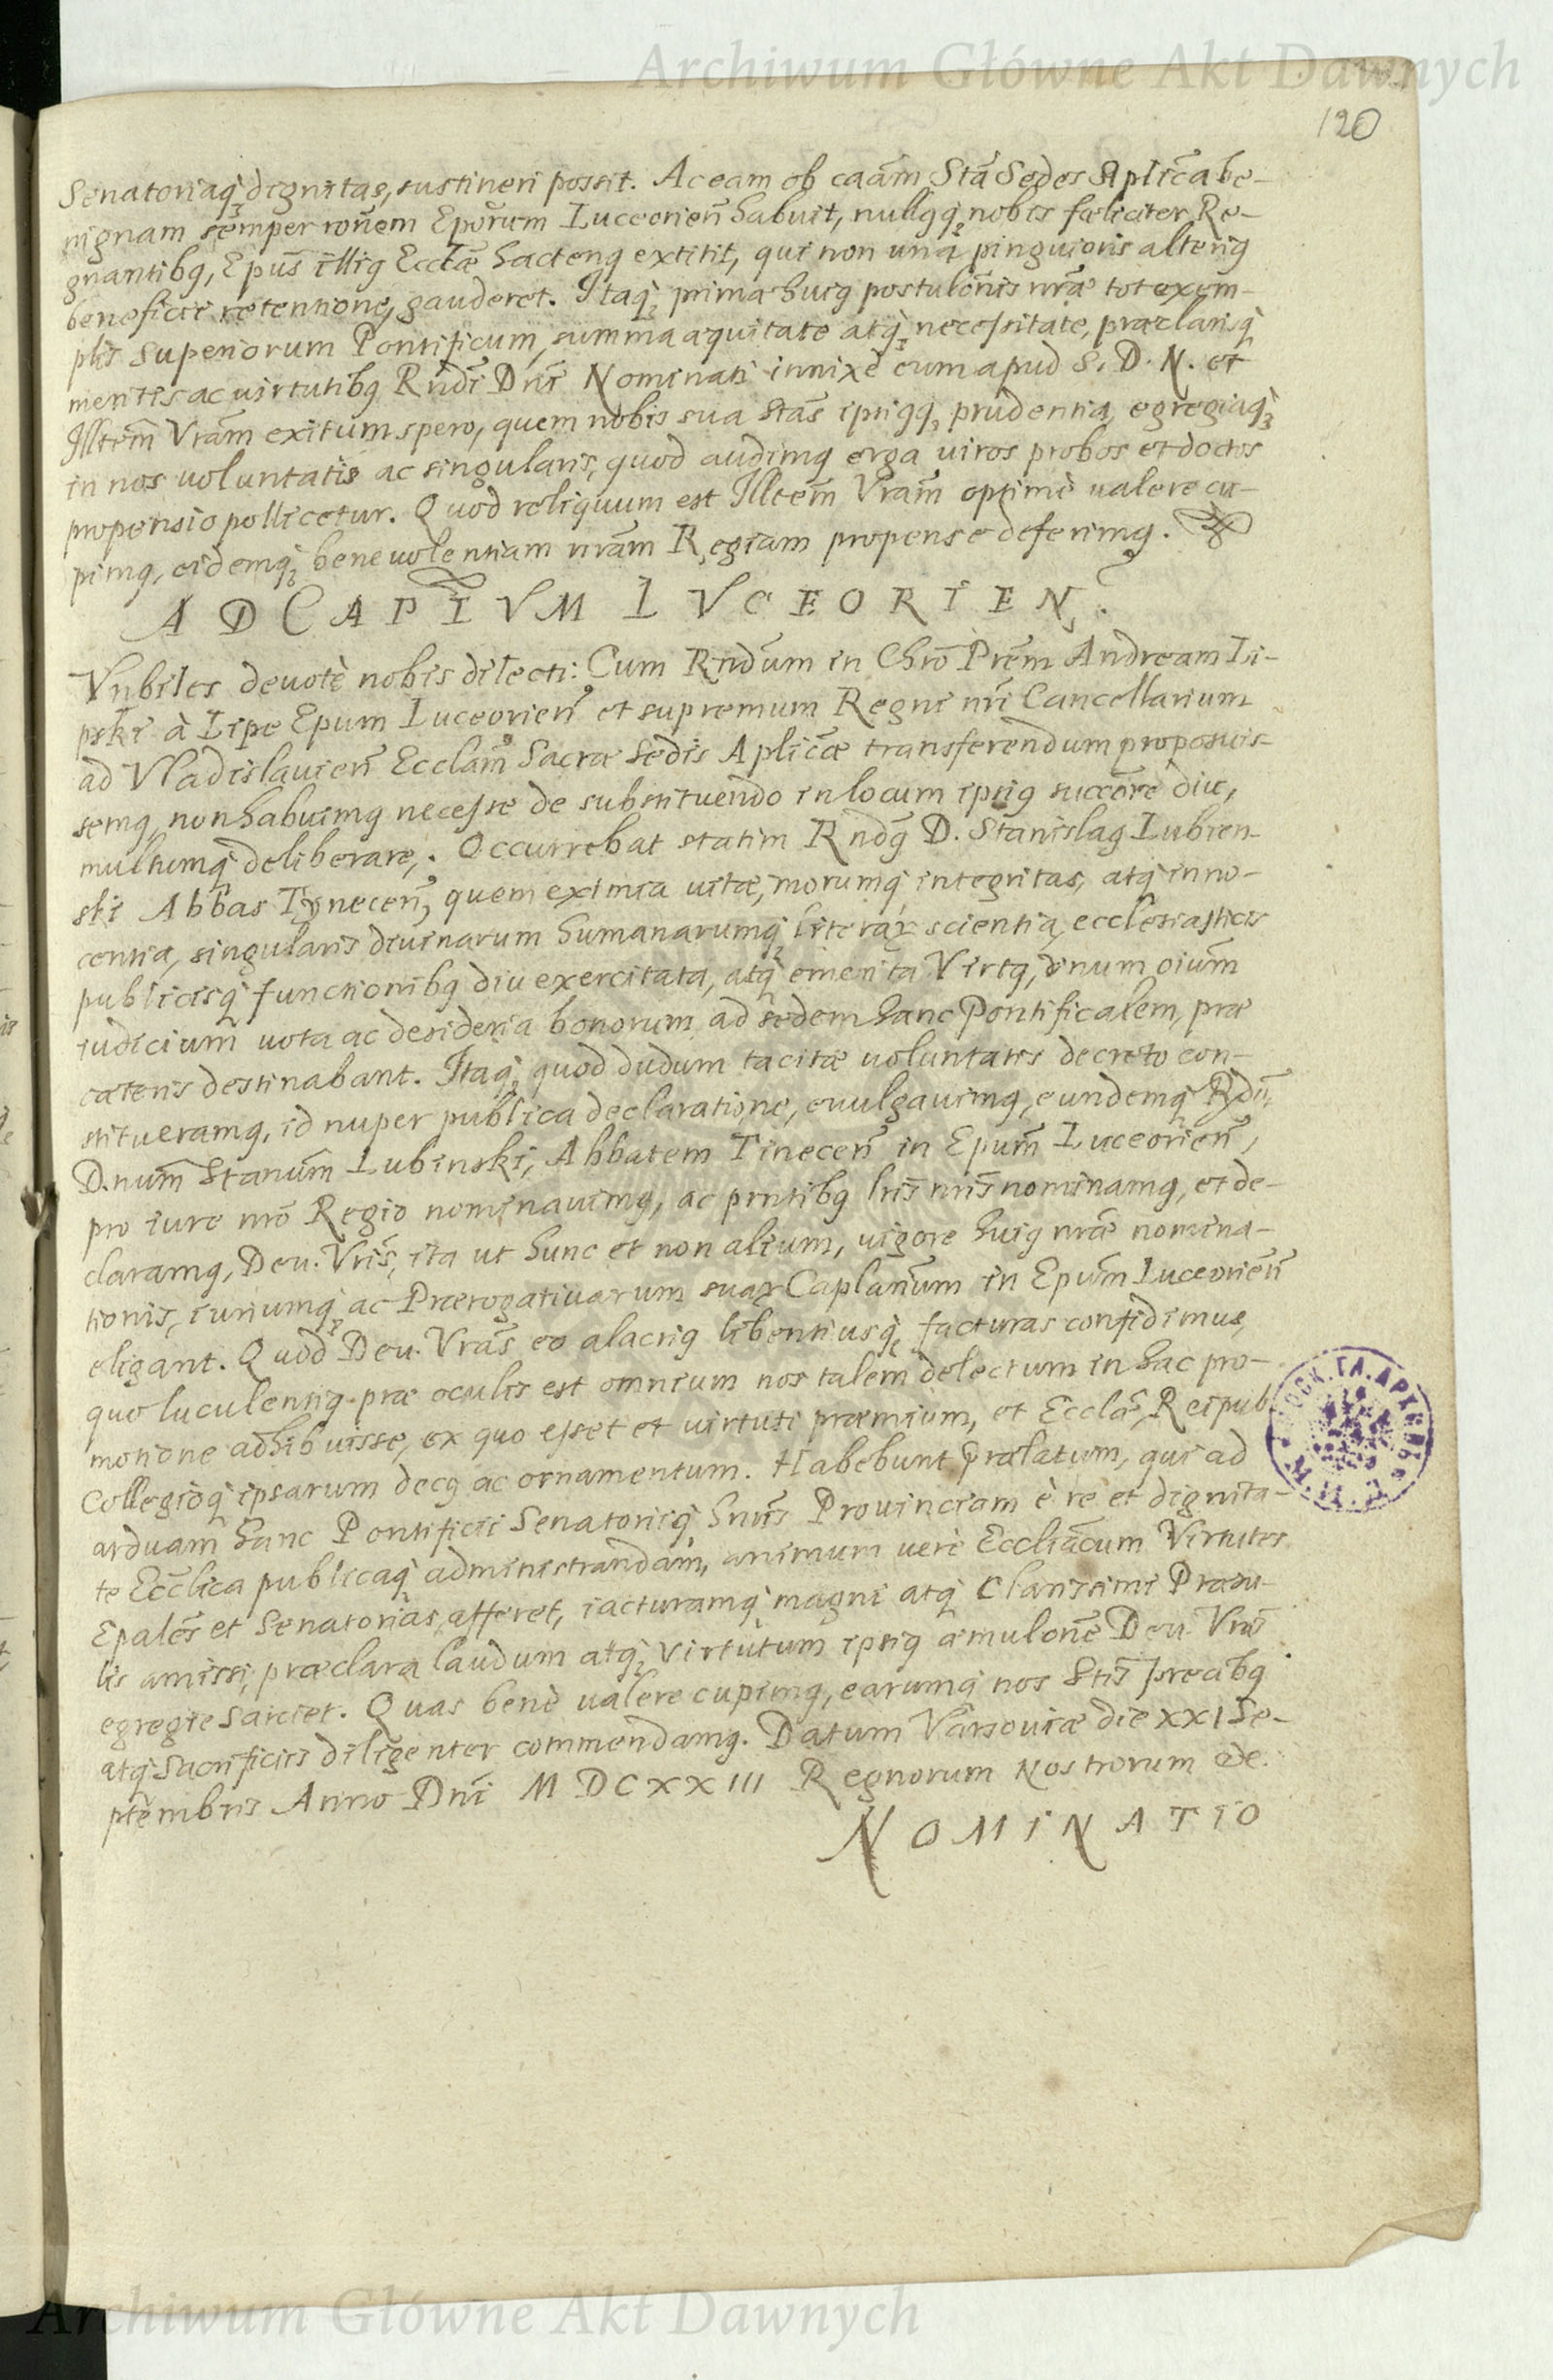 Archiwum Główne Akt Dawnych
120
Senatoriaq; dignitas, sustineri possit. Ac eam ob caãm Stã Sedes Aplicã be-
nignam semper ronẽm Epõrum Luceorien̄ habuit, nullqq; nobis fæliciter Re-
gnantibq, Epũs illiq Ecclæ hactenq extitit, qui non unq pinguioris alteriq
beneficii retentione, gauderet. Itaq; prima huiq postulõnis nræ tot exem-
plis superiorum Pontificum, summa aequitate atq; necessitate, præclarisq;
meritis ac uirtutibq Rndi Dni Nominati innixè eum apud S. D. N. et
Illtẽm Vrãm exitum spero, quem nobis sua Stãs ipsiqq; prudentia, egregiaq;
in nos voluntatis ac singularis, quod audimq erga uiros probos et doctos
propensio pollicetur. Quod reliquum est Illtẽm Vrãm optimè ualere cu-
pimq, eidemq; beneuolentiam nrãm Regiam propense deferimq.
AD CAPIVM LVCEORIEN.
Vnbiles deuotè nobis dilecti: Cum Rndũm in Chrõ Prẽm Andream Li-
pski à Lipe Epum Luceorien̄ et supremum Regni nri Cancellarium
ad Vladislauien̄ Ecclãm Sacræ Sedis Aplicæ transferendum proposuis-
semq, non habuimq necesse de substituendo in locum ipsiq succõre diu,
multumq; deliberare,. Occurrebat statim Rndq D. Stanislaq Lubien-
ski Abbas Tynecen̄, quem eximia uitæ, morumq; integritas, atq; inno-
centia, singularis diuinarum humanarumq; literar scientia, ecclesiasticis
publicisq; functionibq diu exercitata, atq; emerita Virtq, dnum oiũm
iudicium uota ac desideria bonorum ad sedem hanc Pontificalem, præ
cæteris destinabant. Itaq; quod dudum tacitæ uoluntatis decreto con-
stitueramq, id nuper publica declaratione, euulgauimq, eundemq; Rdũ
D.num Stanũm Lubinski, Abbatem Tinecen̄ in Epum̄ Luceorien̄,
pro iure nrõ Regio nominauimq, ac prntibq lris nris nominamq, et de-
claramq, Deu. Vris, ita ut hunc et non alium, uigore huiq nræ nomina-
tionis, iuriumq; ac Prærogatiuarum suar Caplarium in Epum̄ Luceorien̄
eligant. Quod Deu. Vrãs eo alacriq libentiusq; facturas confidimus,
quo luculentiq præ oculis est omnium nos talem delectum in hac pro-
motione adhibuisse, ex quo esset et uirtuti præmium, et Ecclæ, Reipub.
Collegioq; ipsarum decq ac ornamentum. Habebunt Prælatum, qui ad
arduam hanc Pontificii Senatoriiq; hnris Prouinciam è re et dignita-
te Ecclica publicaq; administrandam, animum uere Eccliãcum Virtutes
Epales et Senatorias, afferet, iacturamq; magni atq; Clarissimi Præsu-
lis amissi, præclara laudum atq; Virtutum ipsiq æmulone Deu. Vris
egregie sarciet. Quas benè ualere cupimq, earumq; nos Stis preabq
atq; Sacrificiis diligenter commendamq. Datum Varsouiæ die XXI Se-
ptembris Anno Dni MDCXXIII Regnorum Nostrorum &c.
NOMINATIO
Archiwum Główne Akt Dawnych